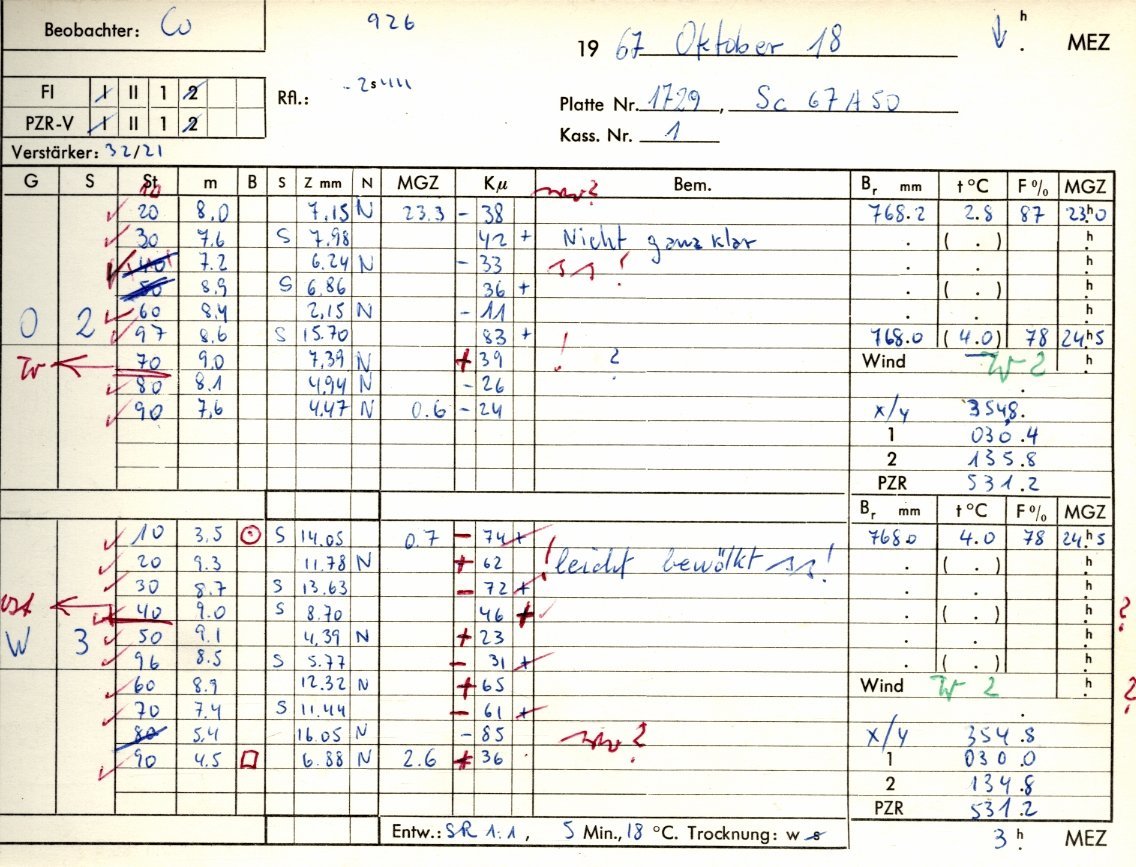 Beobachter: Co
926
19 67 Oktober 18
h MEZ
FI I II 1 2
PZR-V I II 1 2
Rfl.:
Platte Nr. 1729, Sc 67 A 50
Kass. Nr. 1
Verstärker: 32/21
G S St m B S Z mm N MGZ Kμ Bem. Br mm t °C F % MGZ
10
20 8.0 7.15 N 23.3 - 38 768.2 2.8 87 23h0
30 7.6 S 7.98 42 + Nicht ganz klar . ( . ) h
40 7.2 6.24 N - 33 ! . . h
50 8.9 S 6.86 36 + . ( . ) h
60 8.4 2.15 N - 11 . . h
0 2 97 8.6 S 15.70 83 + ! 768.0 ( 4.0 ) 78 24h5
W 70 9.0 7.39 N + 39 ? Wind W 2 h
80 8.1 4.94 N - 26
90 7.6 4.47 N 0.6 - 24 x/y 354.8
1 030.4
2 135.8
PZR 531.2
Br mm t °C F % MGZ
10 3.5 S 14.05 0.7 - 74 + 768.0 4.0 78 24h5
20 9.3 11.78 N + 62 ! leicht bewölkt ! . ( . ) h
30 8.7 S 13.63 - 72 + . . h
Ost 40 9.0 S 8.70 46 + . ( . ) h ?
W 3 50 9.1 4.39 N + 23 . . h
96 8.5 S 5.77 - 31 + . ( . ) h
60 8.9 12.32 N + 65 Wind W 2 h ?
70 7.4 S 11.44 - 61 +
80 5.4 16.05 N - 85 ? x/y 354.8
90 4.5 6.88 N 2.6 + 36 1 030.0
2 134.8
PZR 531.2
Entw.: SR 1:1, 5 Min., 18 °C. Trocknung: w s
3 h MEZ